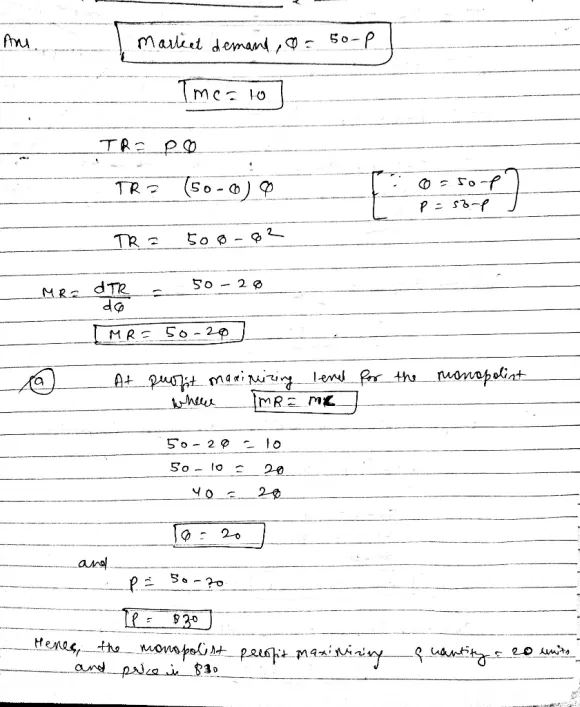 Ans.
Market demand, Q = 50-P
MC = 10
TR = PQ
TR = (50-Q) Q [∵ Q = 50-P
P = 50-P]
TR = 50Q - Q²
MR = dTR/dQ = 50 - 2Q
MR = 50-2Q
(a) At profit maximizing level for the monopolist
where MR = MC
50-2Q = 10
50-10 = 2Q
40 = 2Q
Q = 20
and
P = 50-20
P = $30
Hence, the monopolist profit maximizing quantity = 20 units
and price is $30